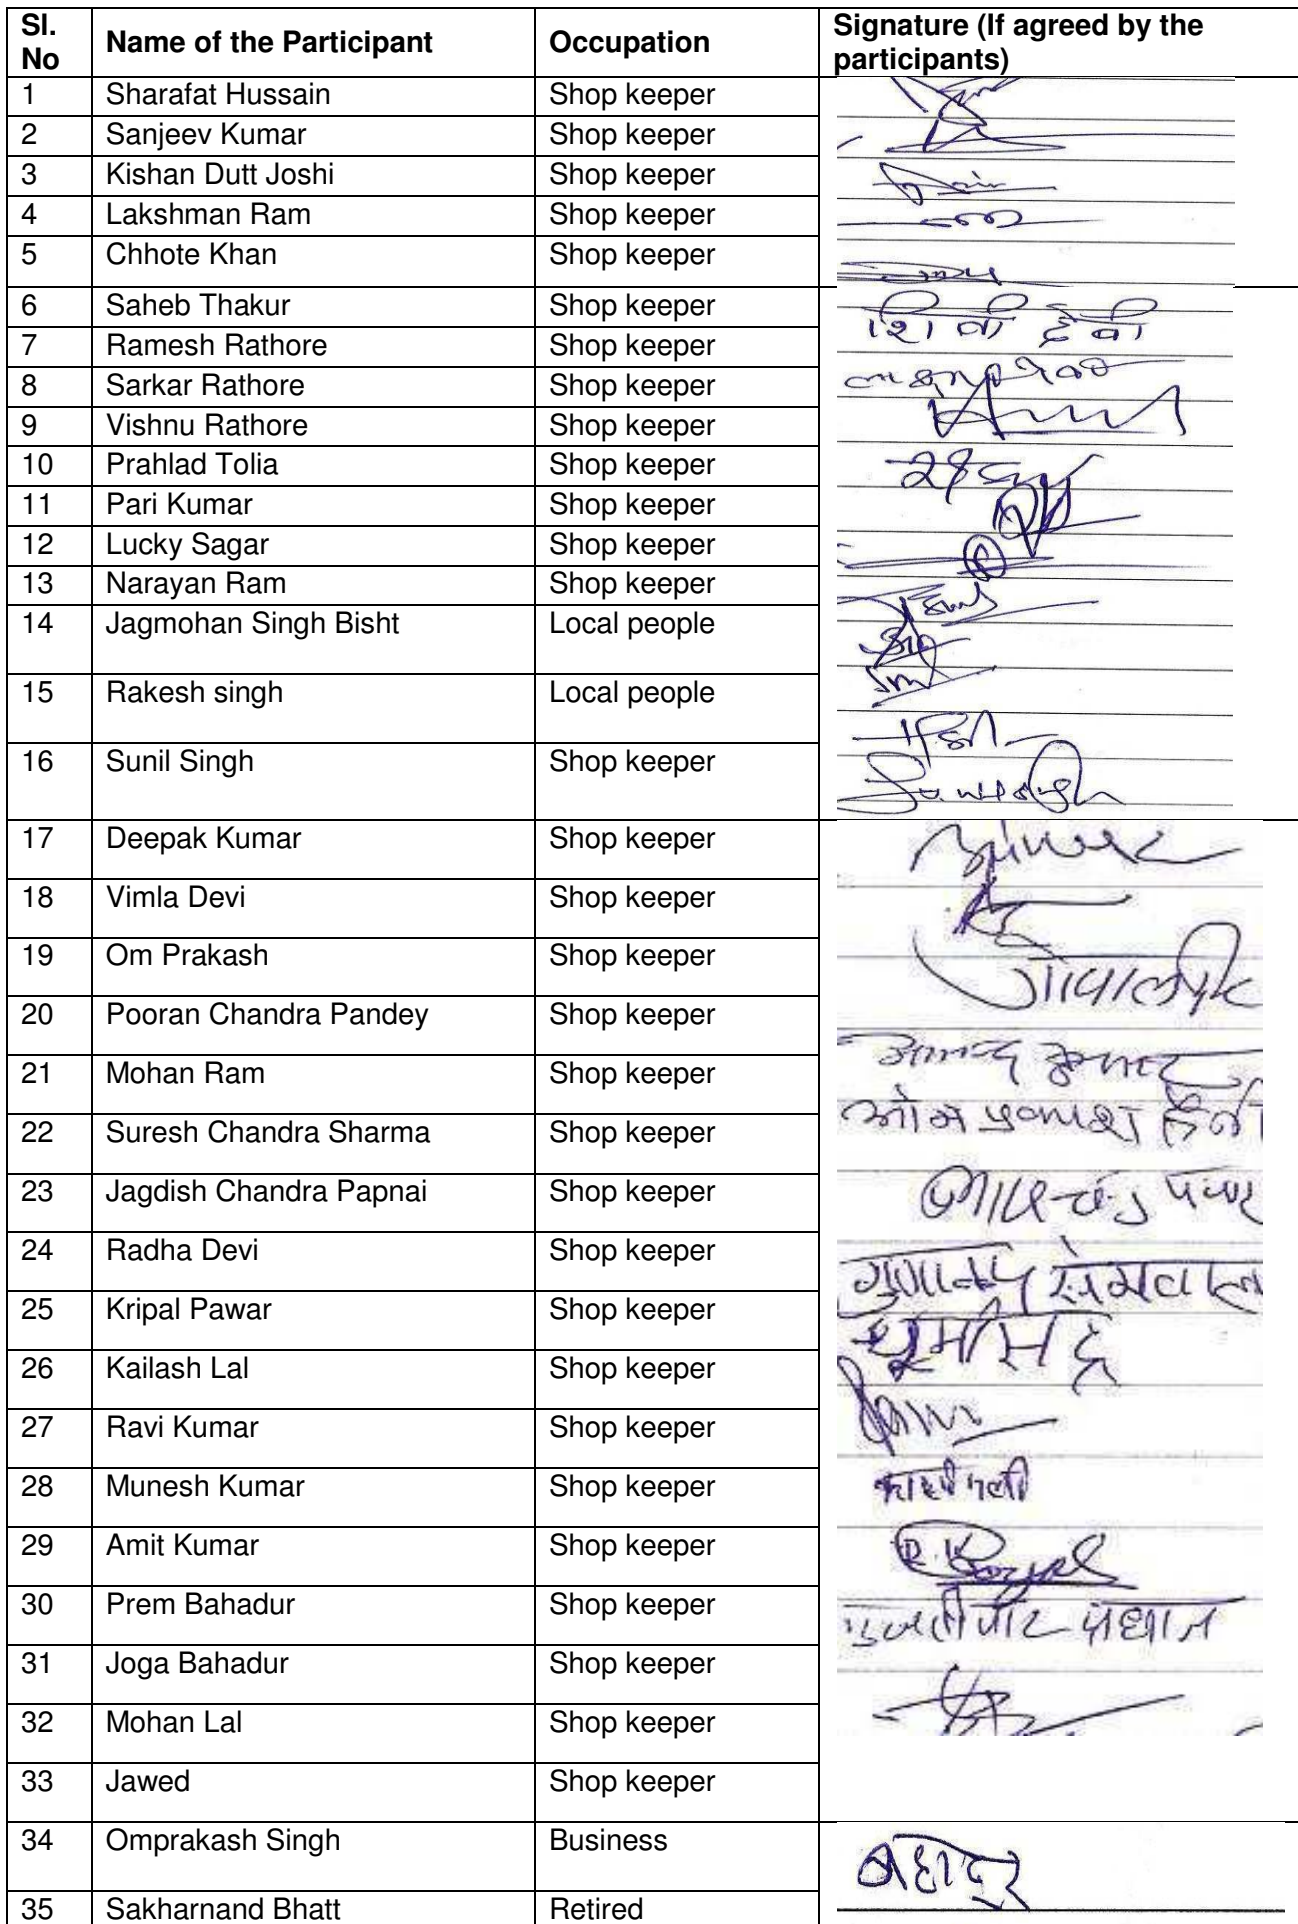 Sl. No Name of the Participant Occupation Signature (If agreed by the participants)
1 Sharafat Hussain Shop keeper
2 Sanjeev Kumar Shop keeper
3 Kishan Dutt Joshi Shop keeper
4 Lakshman Ram Shop keeper
5 Chhote Khan Shop keeper
6 Saheb Thakur Shop keeper देवी
7 Ramesh Rathore Shop keeper
8 Sarkar Rathore Shop keeper
9 Vishnu Rathore Shop keeper
10 Prahlad Tolia Shop keeper
11 Pari Kumar Shop keeper
12 Lucky Sagar Shop keeper
13 Narayan Ram Shop keeper
14 Jagmohan Singh Bisht Local people
15 Rakesh singh Local people
16 Sunil Singh Shop keeper
17 Deepak Kumar Shop keeper
18 Vimla Devi Shop keeper
19 Om Prakash Shop keeper
20 Pooran Chandra Pandey Shop keeper
21 Mohan Ram Shop keeper कुमार
22 Suresh Chandra Sharma Shop keeper ओम प्रकाश
23 Jagdish Chandra Papnai Shop keeper
24 Radha Devi Shop keeper सेमवाल
25 Kripal Pawar Shop keeper
26 Kailash Lal Shop keeper
27 Ravi Kumar Shop keeper
28 Munesh Kumar Shop keeper
29 Amit Kumar Shop keeper
30 Prem Bahadur Shop keeper
31 Joga Bahadur Shop keeper
32 Mohan Lal Shop keeper
33 Jawed Shop keeper
34 Omprakash Singh Business बहादुर
35 Sakharnand Bhatt Retired